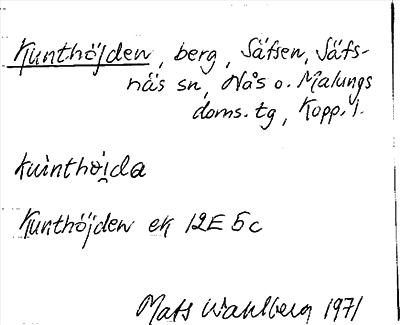 Kunthöjden, berg, Säfsen, Säfs-
näs sn, Nås o. Malungs
doms. tg, Kopp. l.
kuinthöida
Kunthöjden ek 12E 5c
Mats Wahlberg 1971